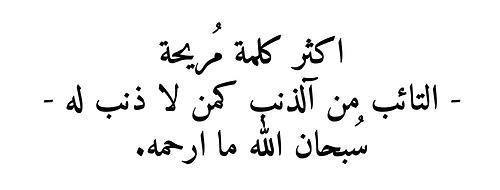 اكثر كلمة مُريحة
- التائب من آلذنب كمن لا ذنب له -
سُبحان الله ما ارحمه.